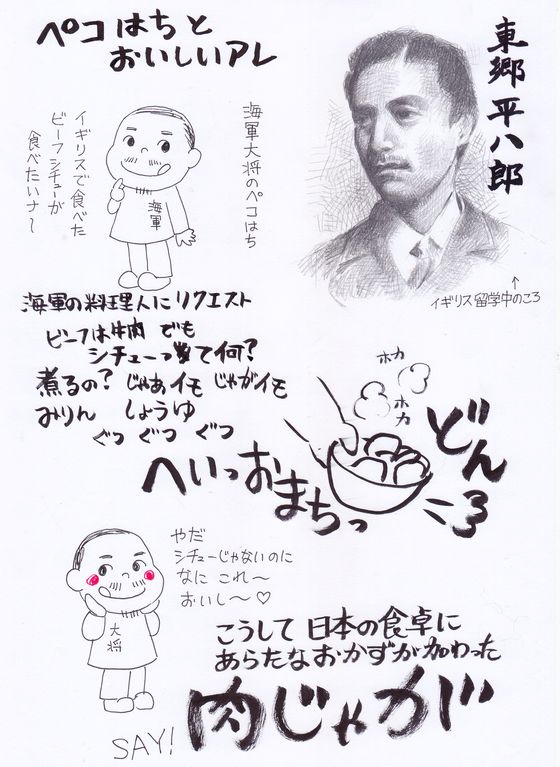 ペコはちと
おいしいアレ
東郷平八郎
海軍大将のペコはち
イギリスで食べた
ビーフシチューが
食べたいナ～
海軍
↑
イギリス留学中のころ
海軍の料理人にリクエスト
ビーフは牛肉 でも
シチューって何?
煮るの? じゃあイモ じゃがイモ
みりん しょうゆ
ぐつ ぐつ ぐつ
ホカ
ホカ
へいっおまちっ
どん
ころ
やだ
シチューじゃないのに
なに これ～
おいし～♡
大将
こうして 日本の食卓に
あらたなおかずが加わった
肉じゃが
SAY!